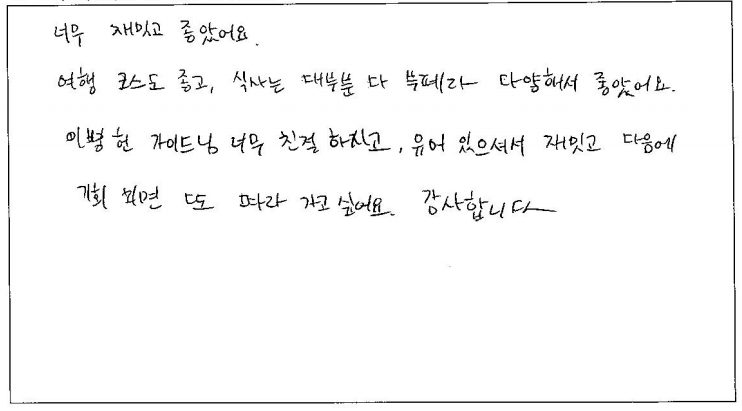 너무 재밌고 좋았어요.
여행 코스도 좋고, 식사는 대부분 다 부페라 다양해서 좋았어요.
이병헌 가이드님 너무 친절하시고, 유머 있으셔서 재밌고 다음에
기회 되면 또 따라 가고 싶어요. 감사합니다